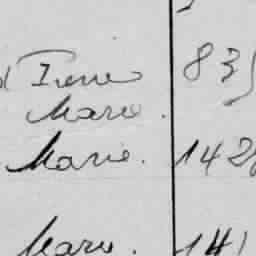 Pierre 83
Marie.
Marie. 142
Marie. 141